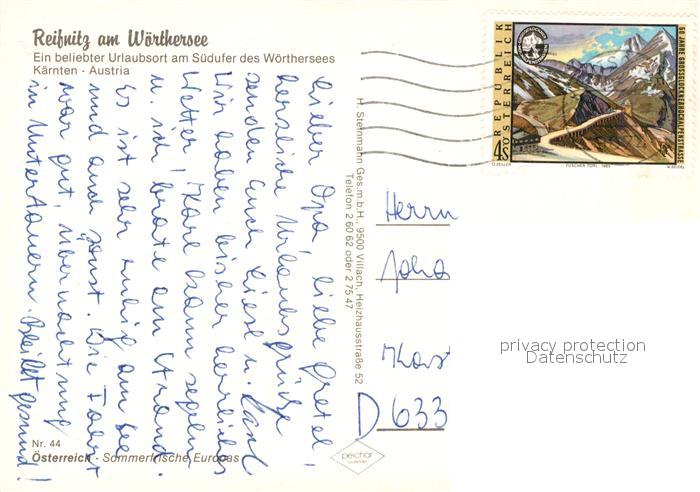 Reifnitz am Wörthersee
Ein beliebter Urlaubsort am Südufer des Wörthersees
Kärnten · Austria
Lieber Opa, liebe Gretel!
herzliche Urlaubsgrüße
senden Euch Liese u. Karl
Wir haben bisher herrliches
Wetter, Karl kann segeln
u. ich brate am Strand.
Es ist sehr ruhig am See
und auch sonst. Die Fahrt
war gut, Übernachtung
in Untertauern. Bleibt gesund!
H. Steinmann Ges.m.b.H., 9500 Villach, Heizhausstraße 52
Telefon 2 60 62 oder 2 75 47
REPUBLIK
ÖSTERREICH
4S
50 JAHRE GROSSGLOCKNERHOCHALPENSTRASSE
O. ZEILLER
FUSCHER TÖRL 1985
W. SEIDEL
Herrn
Joha
Kast
D 633
privacy protection
Datenschutz
Nr. 44
Österreich · Sommerfrische Europas